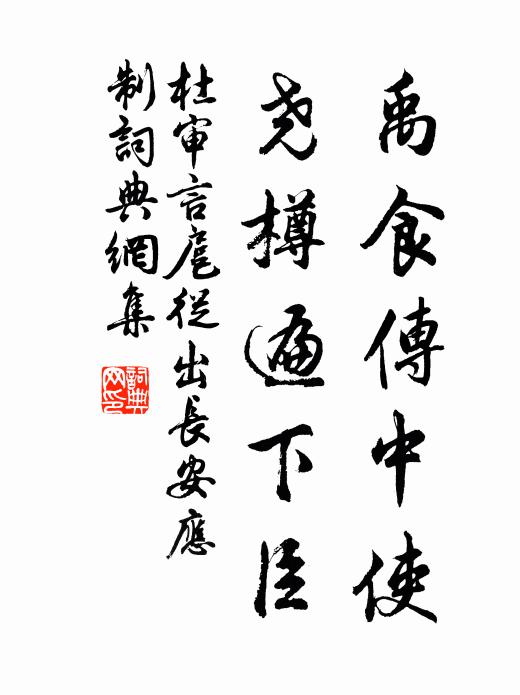 禹食傳中使
堯樽遍下臣
杜審言扈從出長安應
制詞典網集
詞典
网印